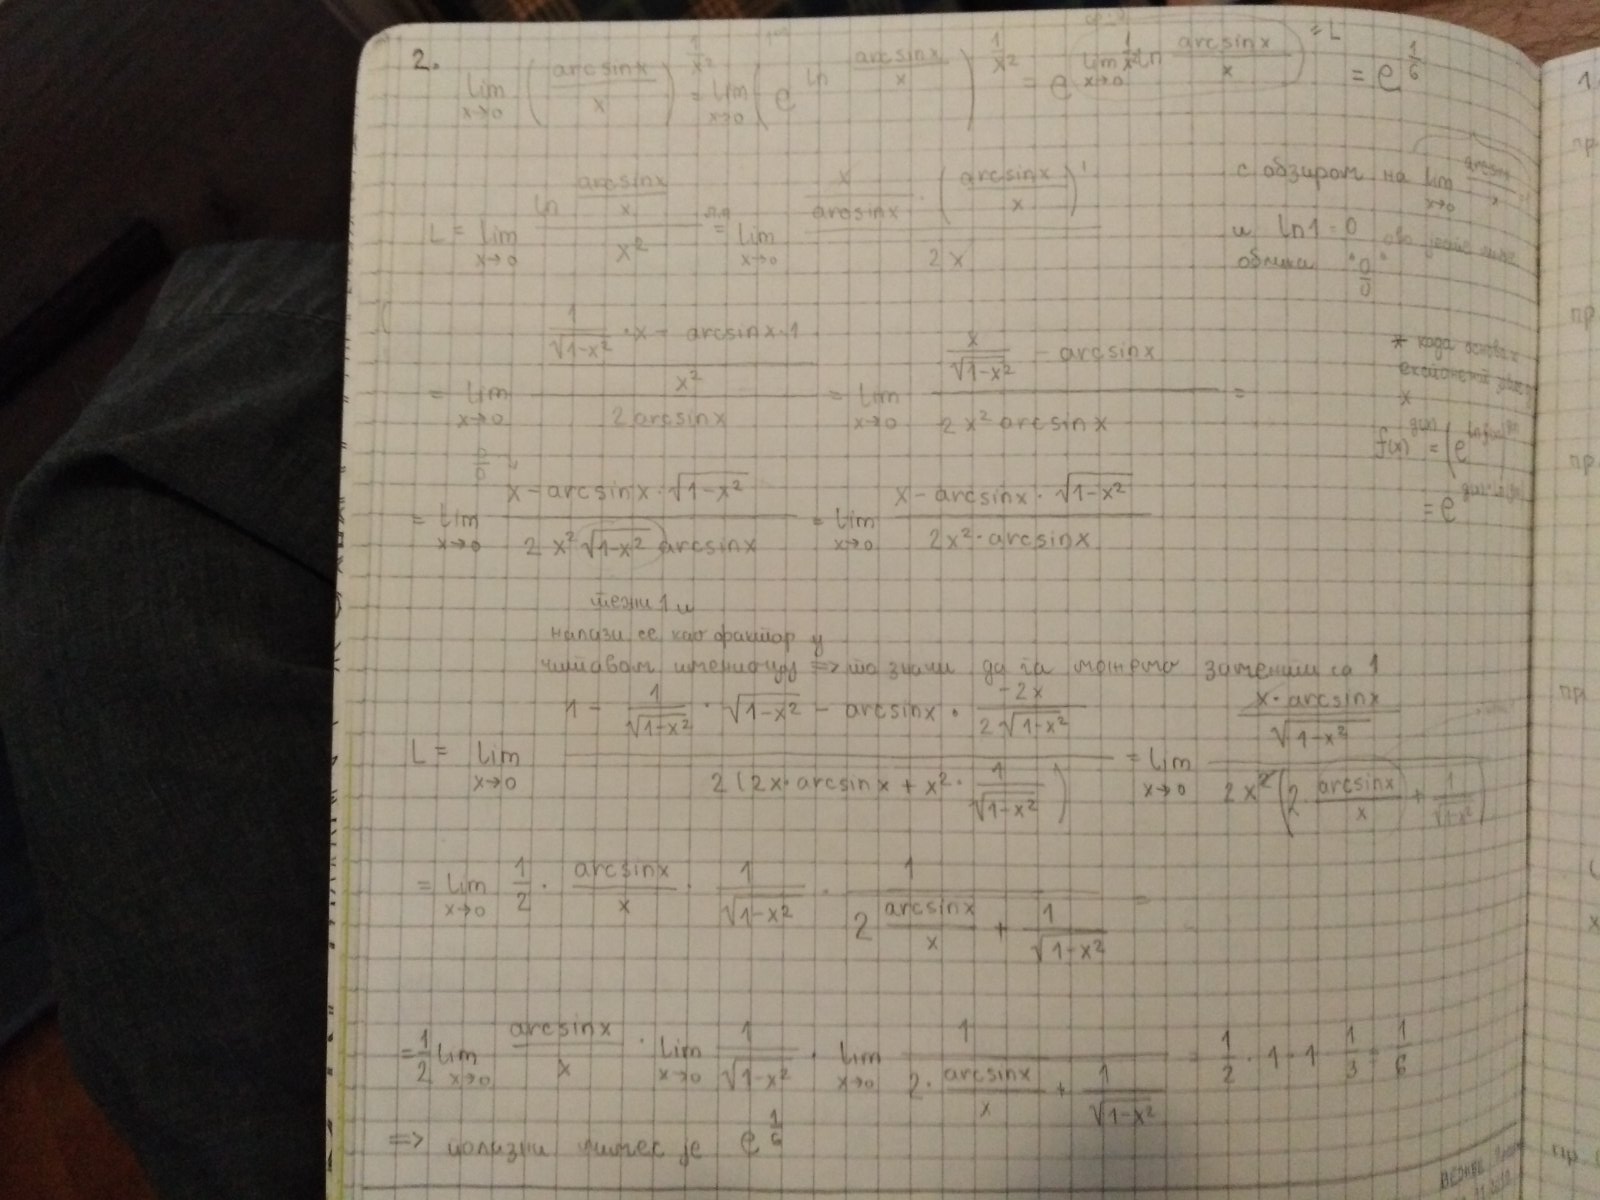 2. lim x→0 (arcsinx / x)^(1/x²) = lim x→0 (e^(ln arcsinx/x))^(1/x²) = e^(lim x→0 1/x² ln arcsinx/x) = e^(1/6)
= L
L = lim x→0 (ln arcsinx/x) / x² = lim x→0 (x/arcsinx · (arcsinx/x)') / 2x
с обзиром на lim x→0 arcsinx/x
и ln1=0 ово
облика "0/0"
= lim x→0 ((1/√(1-x²) · x - arcsinx·1) / x²) / 2arcsinx = lim x→0 (x/√(1-x²) - arcsinx) / 2x² arcsinx =
* када
x
f(x) = (e
= e
"0/0"
= lim x→0 (x - arcsinx · √(1-x²)) / (2x² √(1-x²) arcsinx) = lim x→0 (x - arcsinx · √(1-x²)) / (2x² · arcsinx)
тежи 1 и
налази се као фактор у
читавом имениоцу => то значи да га можемо заменити са 1
L = lim x→0 (1 - 1/√(1-x²) · √(1-x²) - arcsinx · (-2x)/(2√(1-x²))) / (2(2x·arcsinx + x² · 1/√(1-x²))) = lim x→0 (x·arcsinx / √(1-x²)) / (2x² (2 · arcsinx/x + 1/√(1-x²)))
= lim x→0 1/2 · arcsinx/x · 1/√(1-x²) · 1 / (2 arcsinx/x + 1/√(1-x²)) =
= 1/2 lim x→0 arcsinx/x · lim x→0 1/√(1-x²) · lim x→0 1 / (2 · arcsinx/x + 1/√(1-x²)) = 1/2 · 1 · 1 · 1/3 = 1/6
=> полазни лимес је e^(1/6)